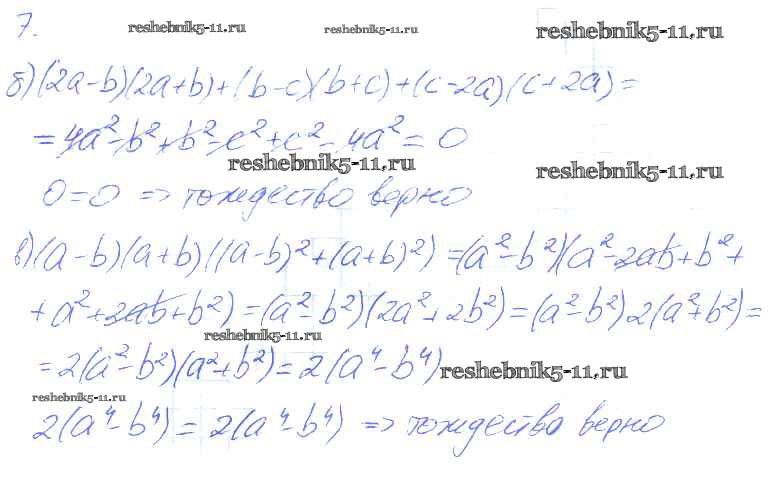 7. reshebnik5-11.ru reshebnik5-11.ru reshebnik5-11.ru
б) (2a-b)(2a+b)+(b-c)(b+c)+(c-2a)(c+2a)=
=4a²-b²+b²-c²+c²-4a²=0
reshebnik5-11.ru reshebnik5-11.ru
0=0 => тождество верно
в) (a-b)(a+b)((a-b)²+(a+b)²)=(a²-b²)(a²-2ab+b²+
+a²+2ab+b²)=(a²-b²)(2a²+2b²)=(a²-b²)2(a²+b²)=
reshebnik5-11.ru
=2(a²-b²)(a²+b²)=2(a⁴-b⁴) reshebnik5-11.ru
reshebnik5-11.ru
2(a⁴-b⁴)=2(a⁴-b⁴) => тождество верно